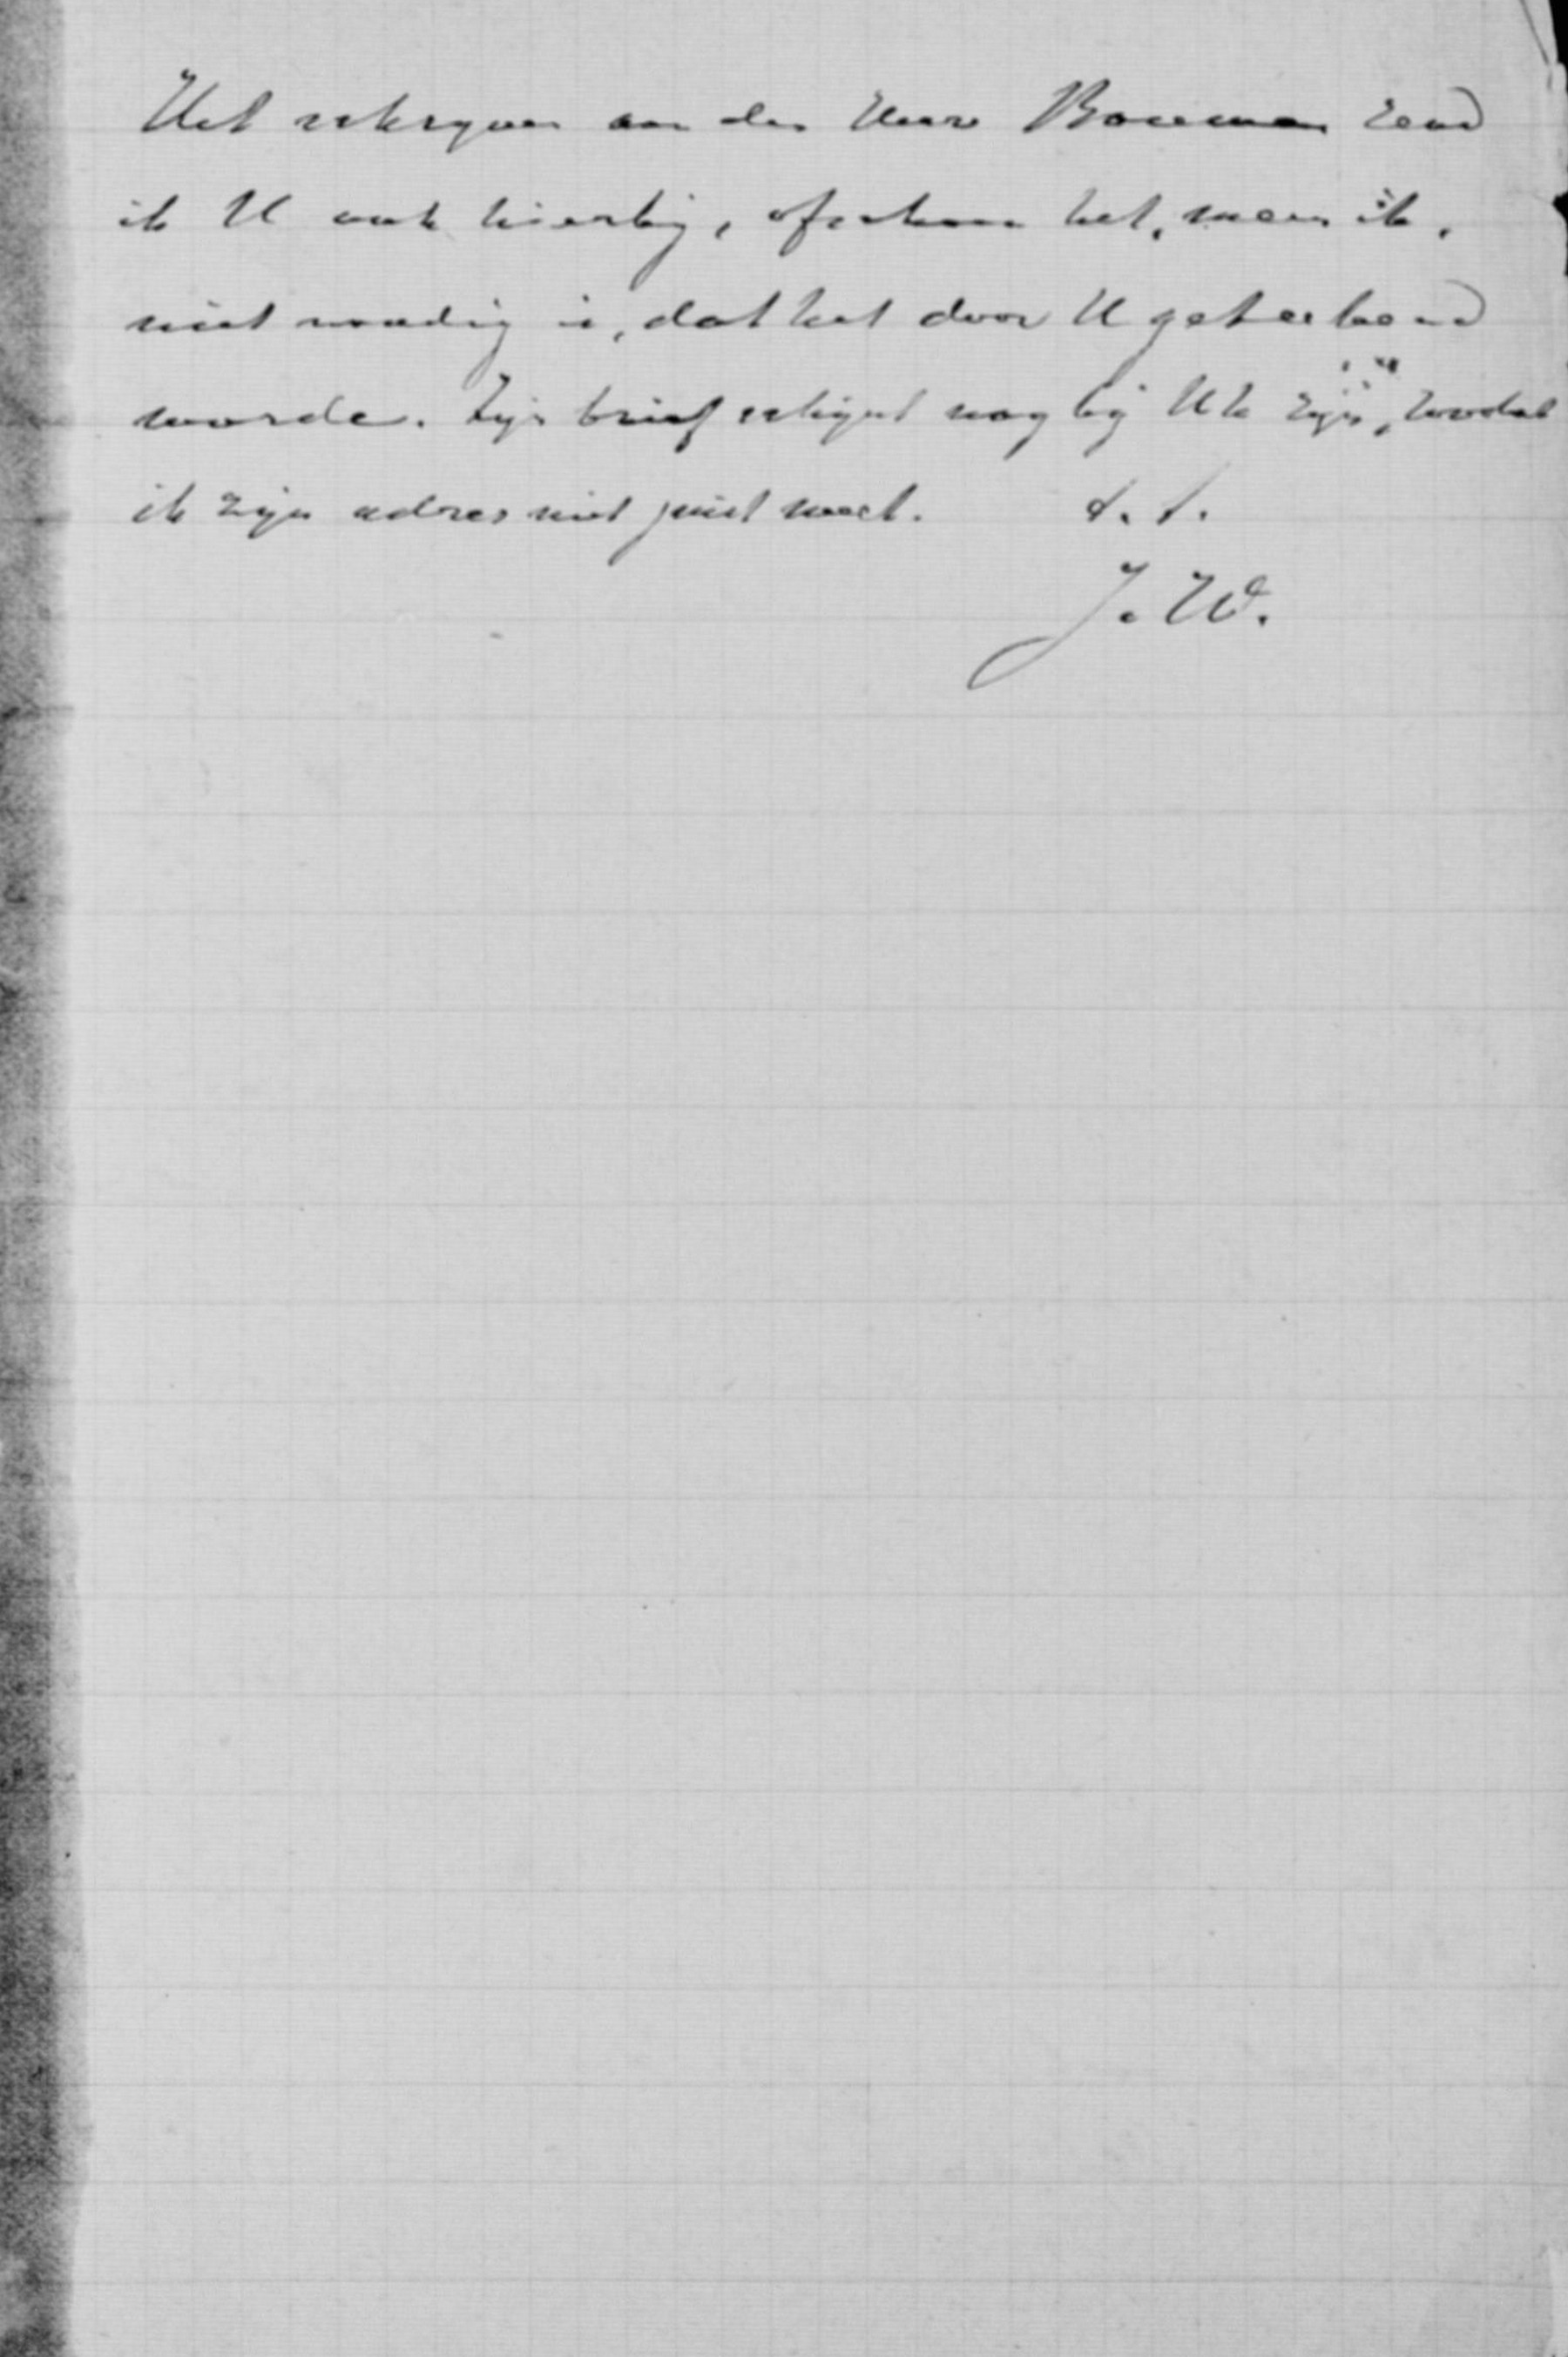 Het schrijven aan den Heer Bouwman zend
ik U ook hierbij, ofschoon het, meen ik,
niet noodig is, dat het door U geteekend
worde. Zijn brief schijnt nog bij U te zijn, zoodat
ik zijn adres niet juist weet. t. t.
J. W.